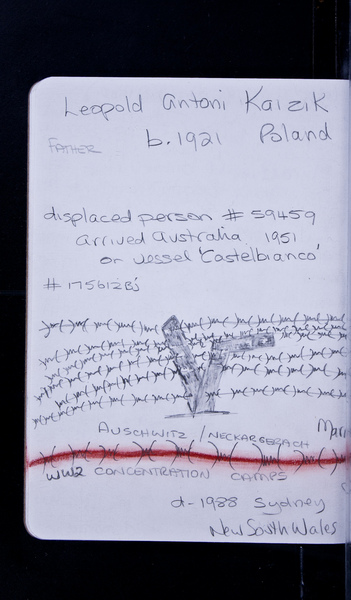 Leopold Antoni Kaizik
FATHER
b. 1921 Poland
displaced person # 59459
arrived Australia 1951
on vessel 'Castelbianco'
# 175612BJ
AUSCHWITZ / NECKARGERACH
WW2 CONCENTRATION CAMPS
d - 1988 Sydney
New South Wales